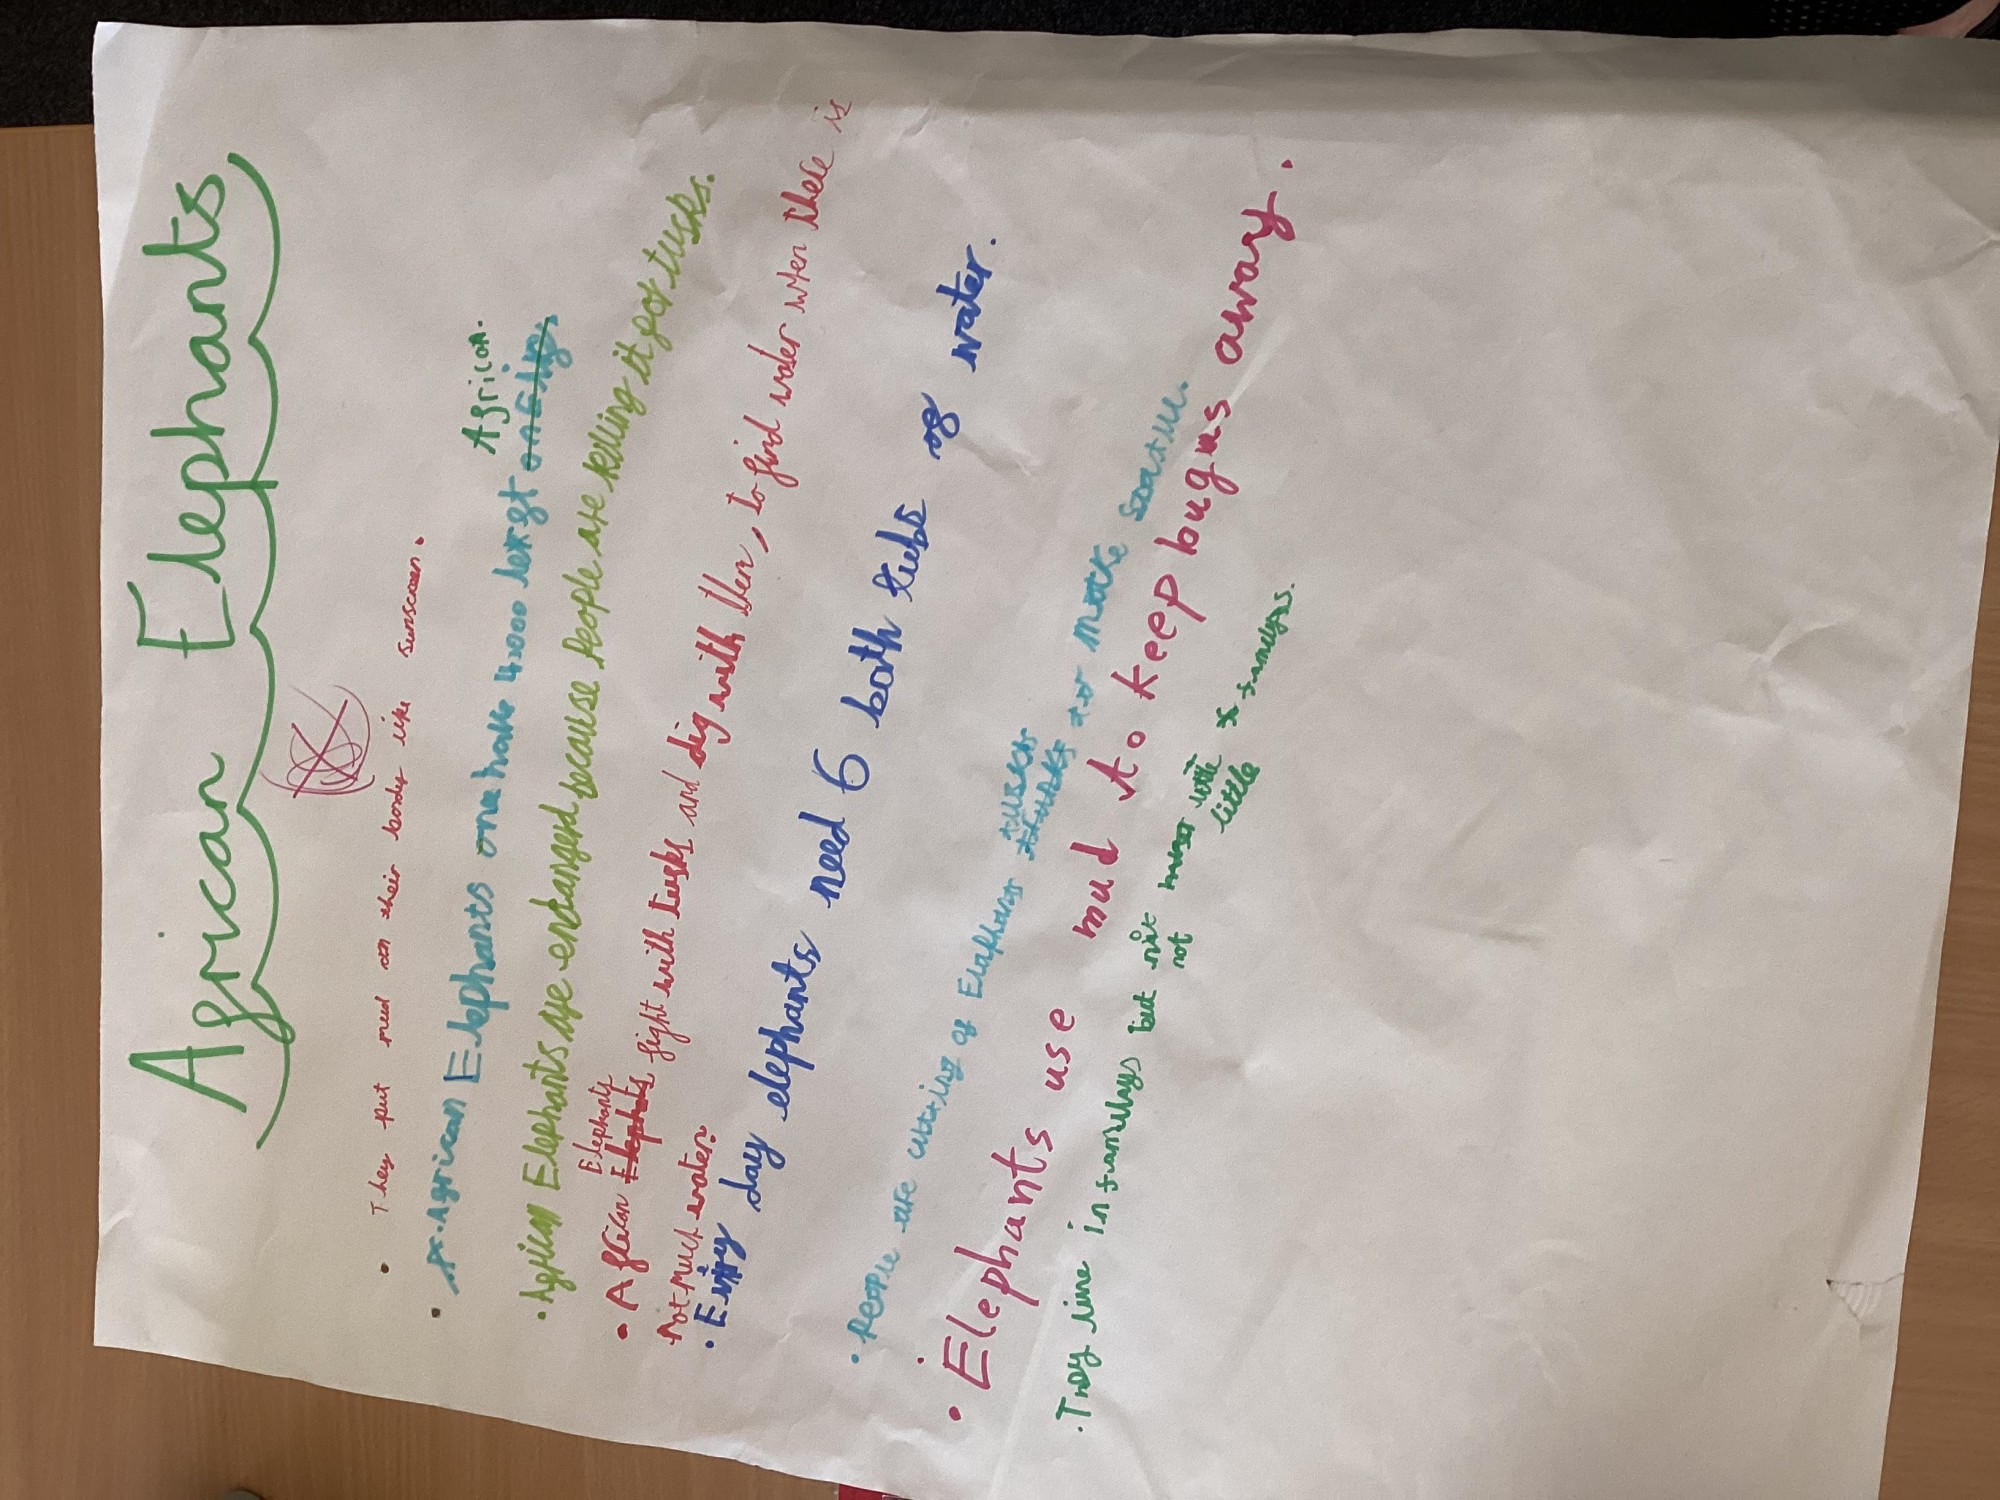 African Elephants
• They put mud on their body like sunscreen.
African.
• African Elephants one have 4000 left
• African Elephants are endangerd because People are killing it for tusks.
Elephants
• African Elephats fight with tusks and dig with then, to find water when there is
not much water.
• Every day elephants need 6 bath tubs of water.
tusks
• People are cutting of Elephants for make
• Elephants use mud to keep bugus away.
• They live in familys but not with x familys.
not little